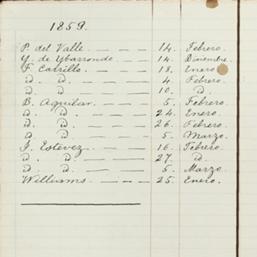 1859.
P. del Valle. — — — 14. Febrero.
Y. de Ybarrondo. — — 14. Diciembre.
F. Carrillo. — — — 18. Enero.
D. D. — — — 4. Febrero.
D. D. — — — 10. D.
B. Aguilar. — — — 5. Febrero.
D. D. — — — 24. Enero.
D. D. — — — 26. Febrero.
D. D. — — — 5. Marzo.
J. Estévez. — — — 16. Febrero.
D. D. — — — 27. D.
D. D. — — — 5. Marzo.
Williams. — — — 25. Enero.